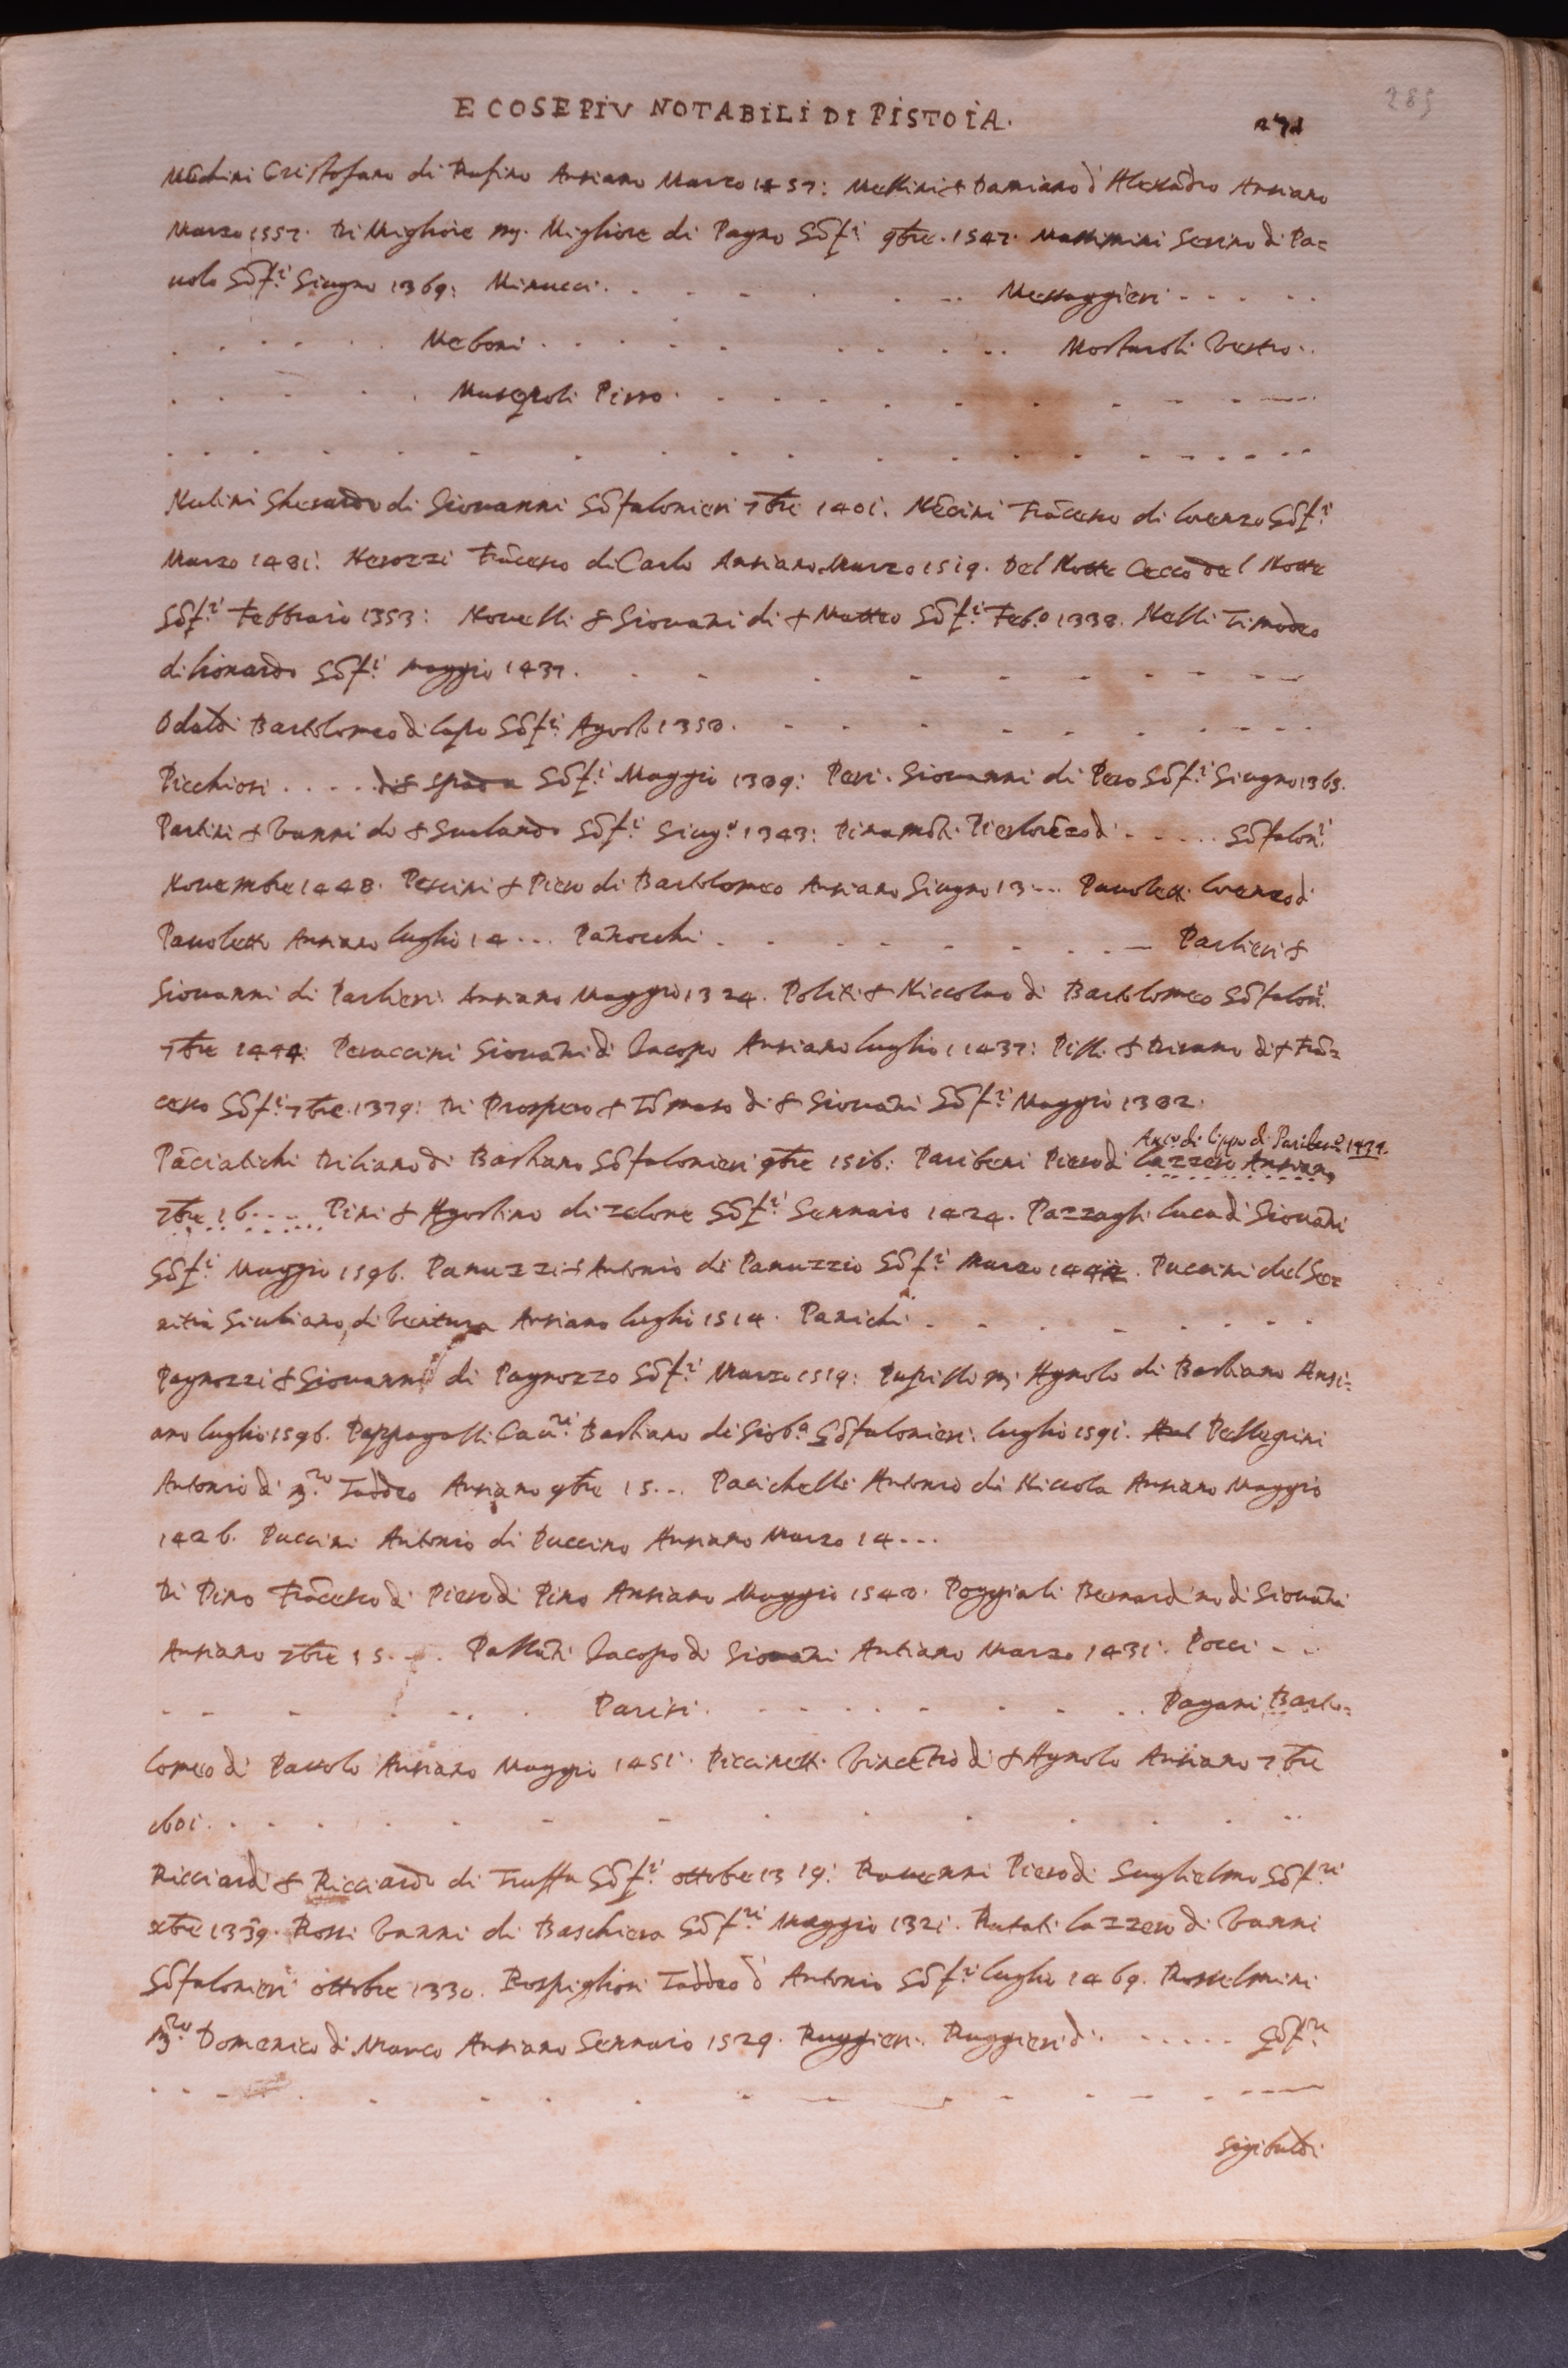 E COSE PIV NOTABILI DI PISTOIA. 271
285
Mēchini Cristofano di Rufino Ansiano Marzo 1457: Mellini & Damiano d' Alexādro Ansiano
Marzo 1557. Di Migliore Migliore di Pagno Gōf.ri 9bre. 1547. Serino di Pa=
uolo Gōf.ri Giugno 1369: Minucci. Messaggieri
Meboni Mostaroli
Piero
Nelini Gherardo di Giouanni Gōfalonieri 7bre 1401. Nēcini Frācesco di Lorenzo Gōf.ri
Marzo 1481: Nerozzi Frācesco di Carlo Ansiano Marzo 1519. Del Notte Cecco del Notte
Gōf.ri Febbraio 1353: Nouelli & Giouāni di & Matteo Gōf.ri Feb.o 1338. Nelli Timodeo
di Lionardo Gōf.ri maggio 1437.
Odaldi Bartolomeo di Lapo Gōf.ri Agosto 1350.
Picchiosi di & spada Gōf.ri Maggio 1309: Peri. Giouanni di Pero Gōf.ri Giugno 1363.
Partini & Vanni di & Gōf.ri Giug.o 1343: Gōfalon.ri
Nouembre 1448. Pescini & Piero di Bartolomeo Ansiano Giugno 13... Pauoletti Lorenzo di
Pauoletto Ansiano luglio 14... Panocchi Partieri &
Giouanni di Partieri Ansiano Maggio 1324. Politi & Niccolao di Bartolomeo Gōfalon.ri
7bre 1444: Peraccini Giouāni di Iacopo Ansiano luglio 1437: di & Frā=
cesco Gōf.ri 7bre. 1379: Di Prospero & Tōmaso di & Giouāni Gōf.ri Maggio 1382.
Ans.o di Lippo di Pariben.o 1474.
Pāciatichi di Bastiano Gōfalonieri 9bre 1516: Paribeni Piero di Lazzero Ansiano
7bre 16.... Pini & Agostino di zelone Gōf.ri Gennaio 1424. Pazzagli Luca di Giouāni
Gōf.ri Maggio 1596. Panuzzi & Antonio di Panuzzio Gōf.ri Marzo Puccini del Ser=
Giuliano di Ventura Ansiano luglio 1514. Panichi
Pagnozzi & Giouanni di Pagnozzo Gōf.ri Marzo 1519: Agnolo di Bastiano Ansi=
ano luglio 1596. Pappagalli Cau.ri Bastiano di Giob.a Gōfalonieri luglio 1591. Pellegrini
Antonio di m.ro Taddeo Ansiano 9bre 15... Pacichelli Antonio di Niccola Ansiano Maggio
1426. Puccini Antonio di Puccino Ansiano Marzo 14...
Di Pino Frācesco di Piero di Pino Ansiano Maggio 1540. Poggiali Bernardino di Giouāni
Ansiano 7bre 15... Iacopo di Giouāni Antiano Marzo 1431. Pocci
Parisi. Pagani Barto=
lomeo di Pauolo Ansiano Maggio 1451. Piccinetti Vincētio di & Agnolo Ansiano 7bre
Ricciardi & Ricciardo di Truffa Gōf.ri ottobre 1319: Rauenni Piero di Guglielmo Gōf.ri
xbre 1339. Rossi Vanni di Baschiera Gōf.ri Maggio 1321. Rutati Lazzero di Vanni
Gōfalonieri ottobre 1330. Rospigliosi Taddeo d' Antonio Gōf.ri luglio 1469. Rosselmini
m.ro Domenico di Marco Ansiano Gennaio 1529. Ruggieri Ruggieri di Gōf.ri
Sigibuldi